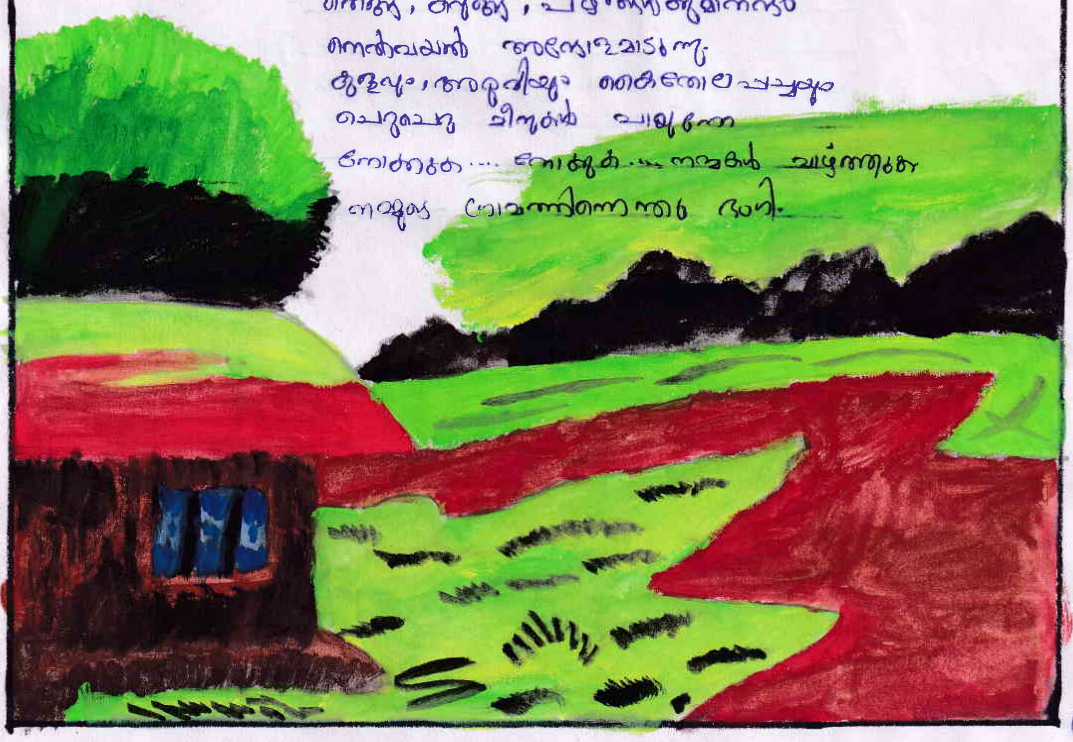 നെൽവയൽ അന്ദോളമാടുന്നു
കുളവും, അരുവിയും കൈതോല പച്ചയും
ചെറുചെറു മീനുകൾ പായുന്നേ
നോക്കുക.... നോക്കുക.... നന്മകൾ വാഴ്ത്തുക
നമ്മുടെ ഗ്രാമത്തിനെന്തു ഭംഗി.